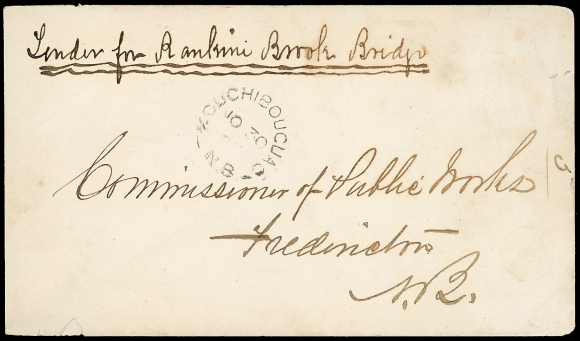 Tender for Rankins Brook Bridge
KOUCHIBOUGUAC
NO 30
N.B
Commissioner of Public Works
Fredericton
N.B.